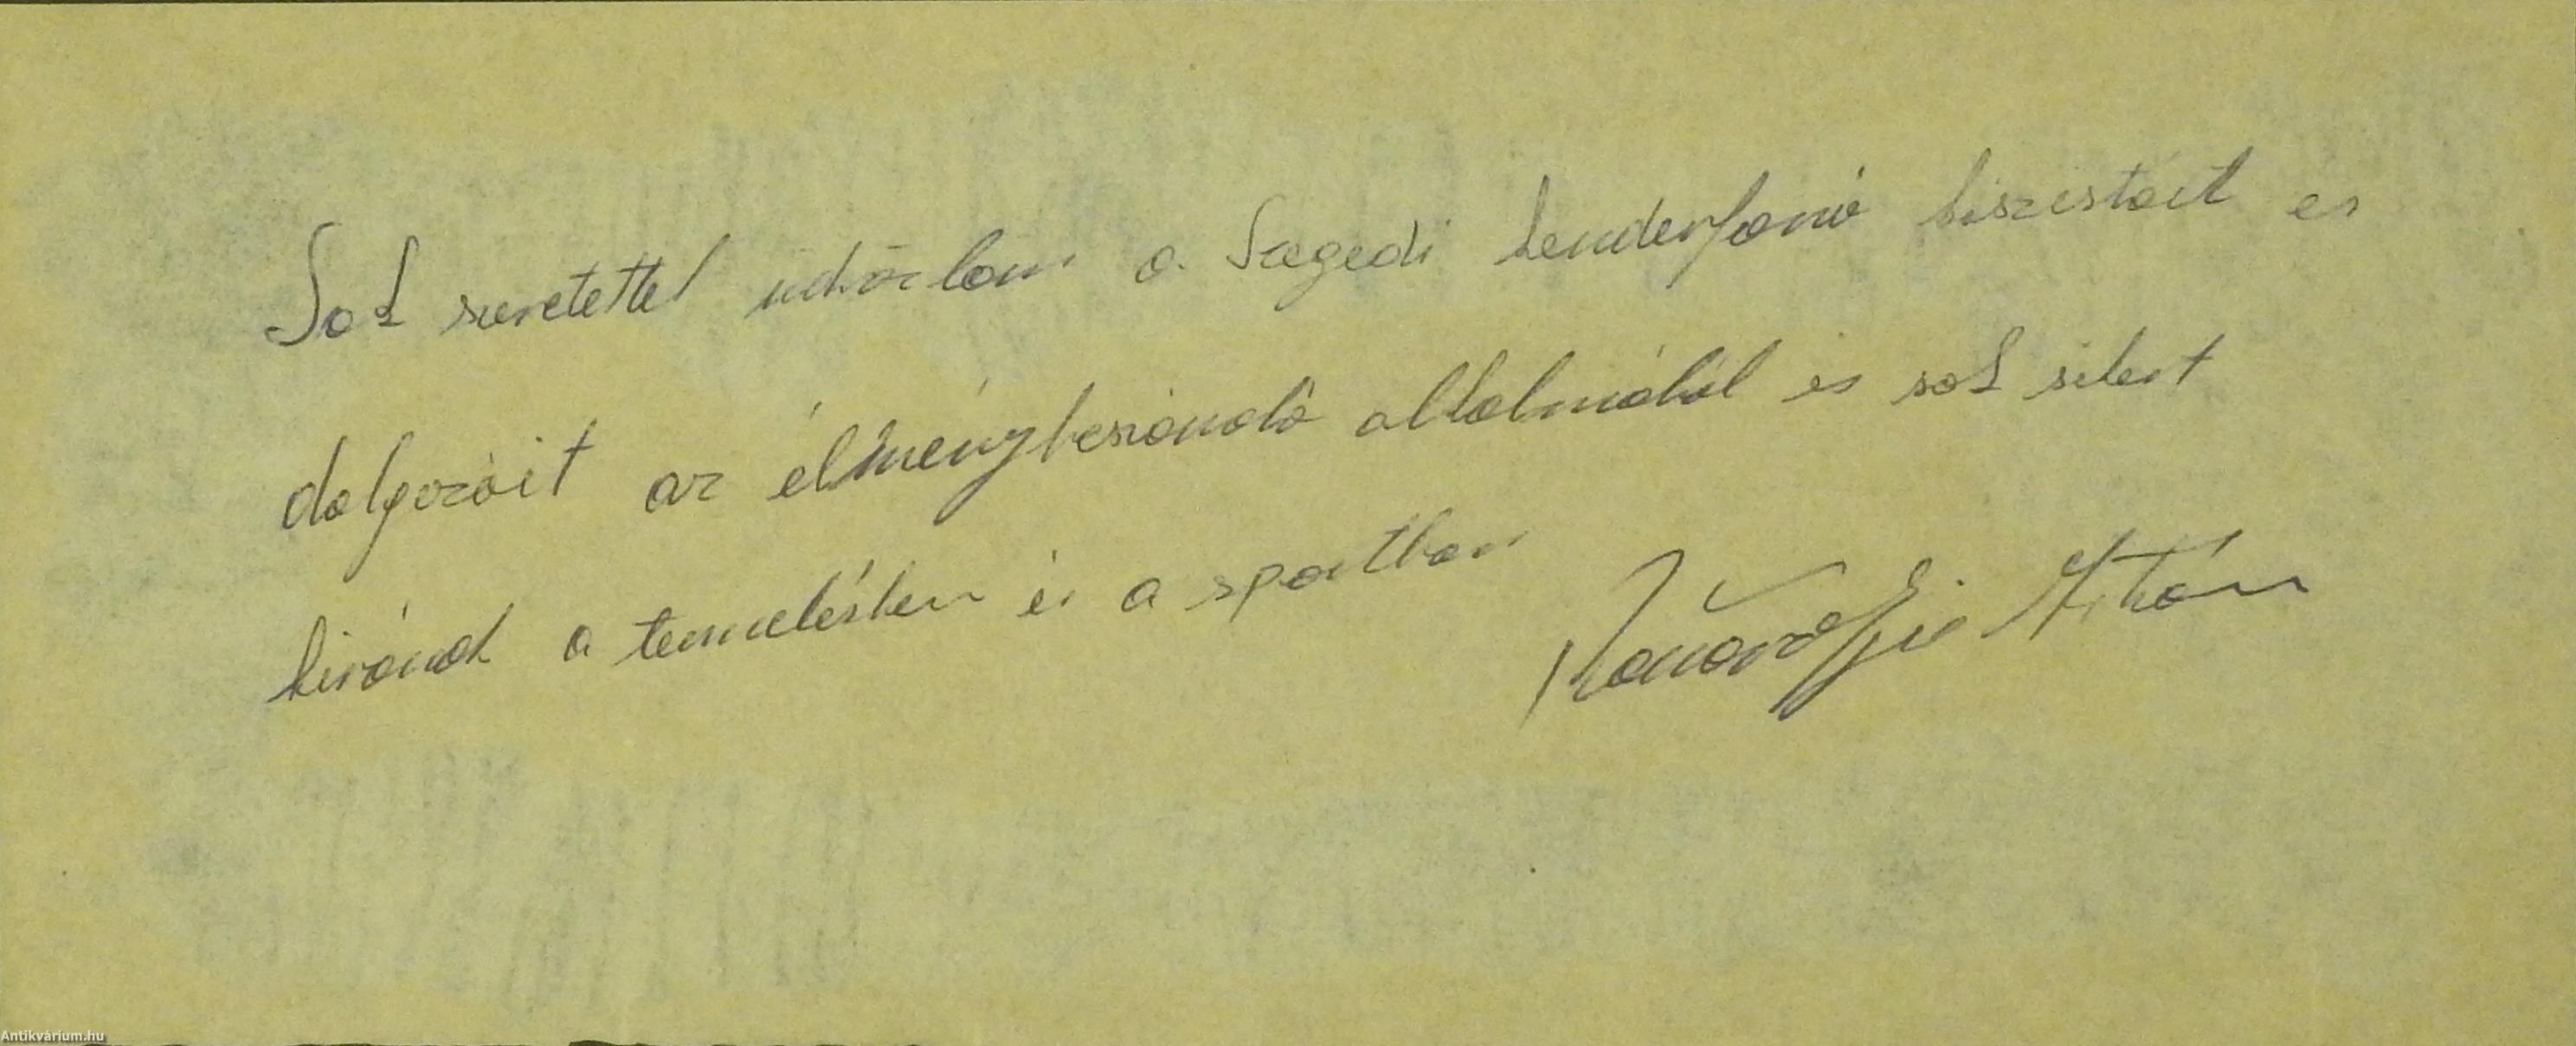 Sok szeretettel üdvözlöm a Szegedi kenderfonó tiszistait és
dolgozóit az élménybeszámoló alkalmából és sok sikert
kivánok a termelésben és a sportban
Antikvárium.hu